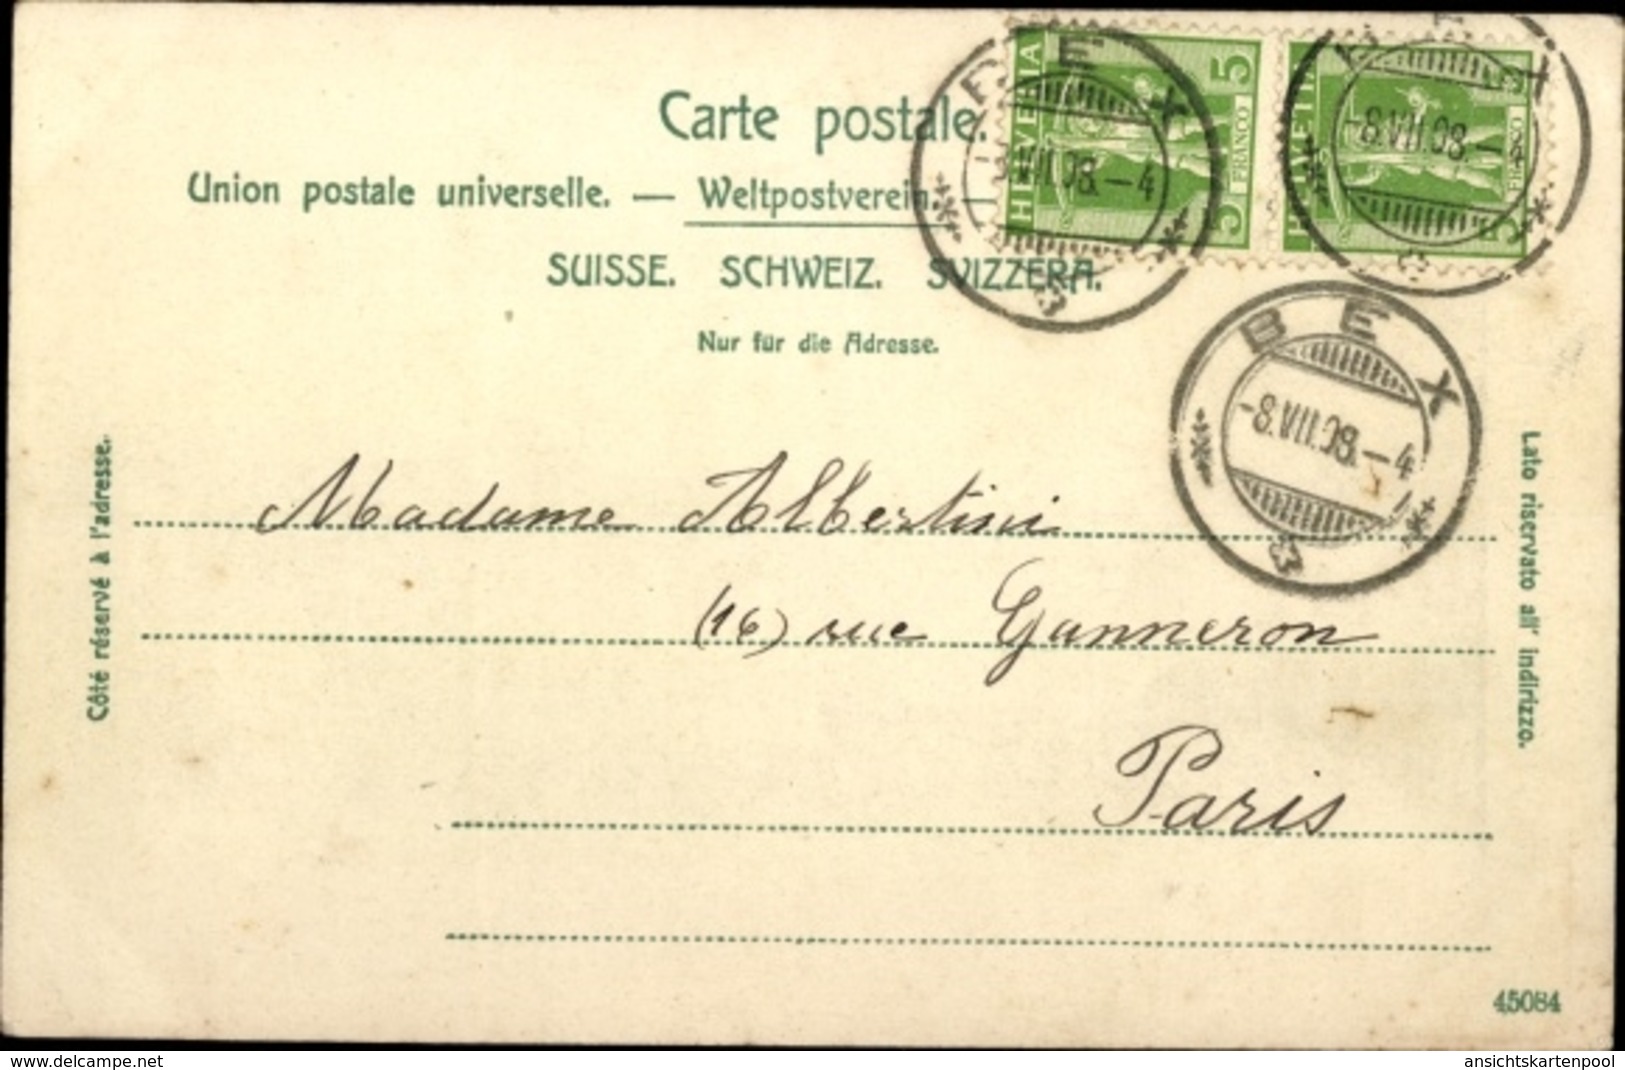 Carte postale.
Union postale universelle. — Weltpostverein.
SUISSE. SCHWEIZ. SVIZZERA.
Nur für die Adresse.
HELVETIA
5 5
FRANCO
HELVETIA
FRANCO
BEX
VIII.08.–4
BEX
-8.VIII.08.–4
BEX
-8.VIII.08.–4
Côté réservé à l'adresse.
Lato riservato all' indirizzo.
Madame Albertini
(16) rue Ganneron
Paris
45084
www.delcampe.net
ansichtskartenpool